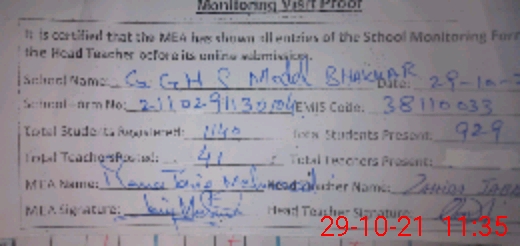 Monitoring Visit Proof
It is certified that the MEA has shown all entries of the School Monitoring Form
the Head Teacher before its online submission.
School Name: G G H S Model BHAKKAR Date: 29-10-
School Form No: EMIS Code: 38110033
Total Students Registered: 1140 Total Students Present: 929
Total Teachers Posted: 41 Total Teachers Present:
MEA Name: Head Teacher Name: ZAHIDA
MEA Signature: Head Teacher Signature:
29-10-21 11:35